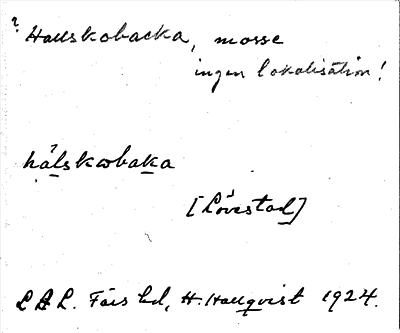 ? Hallskobacka, mosse
ingen lokalisation!
hålskωbaka
[Lövestad]
L.A.L. Färs hd, H. Hallqvist 1924.